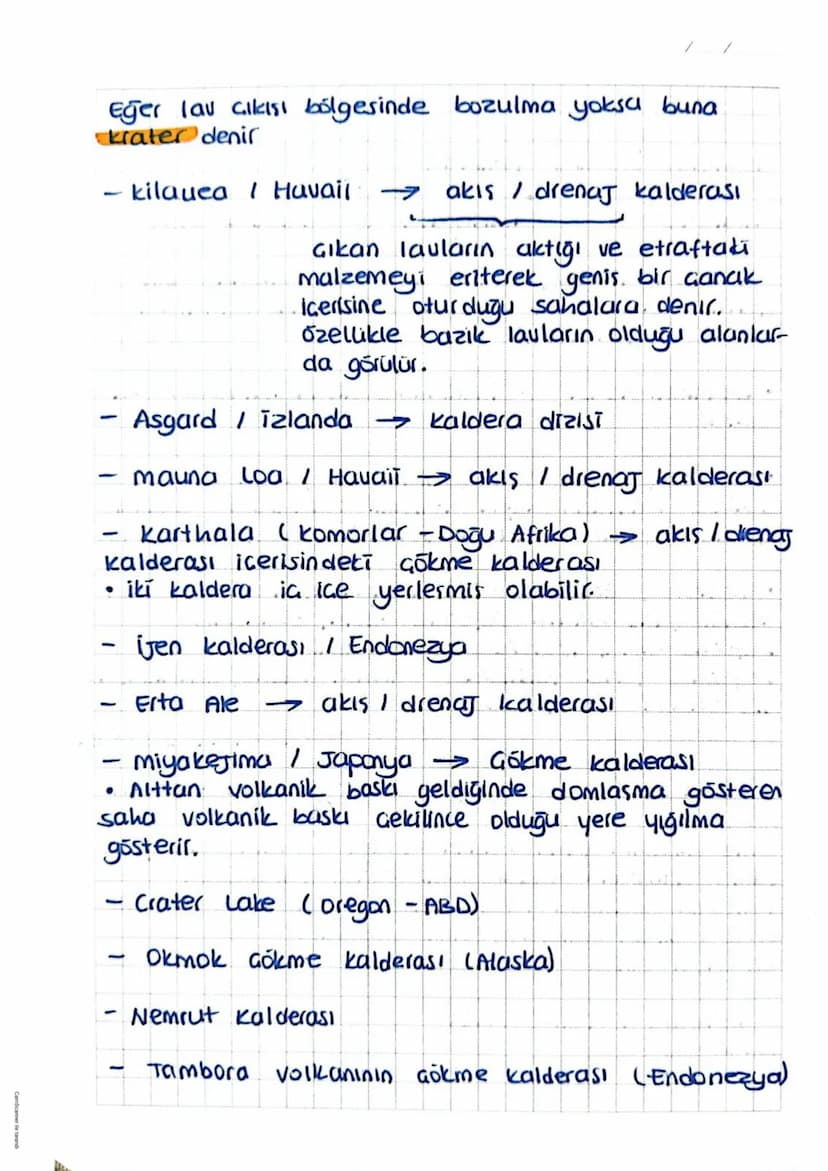 / /
Eğer lav çıkışı bölgesinde bozulma yoksa buna
krater denir
- Kilauea / Havaii → akış / drenaj kalderası
Çıkan lavların aktığı ve etraftaki
malzemeyi eriterek geniş bir çanak
içerisine oturduğu sahalara denir.
özellikle bazik lavların olduğu alanlar-
da görülür.
- Asgard / İzlanda → kaldera dizisi
- mauna Loa / Havaii → akış / drenaj kalderası
- Karthala (Komorlar - Doğu Afrika) → akış / drenaj
kalderası içerisindeki çökme kalderası
• iki kaldera iç içe yerleşmiş olabilir.
- İjen kalderası / Endonezya
- Erta Ale → akış / drenaj kalderası
- Miyakejima / Japonya → Çökme kalderası
• Alttan volkanik baskı geldiğinde domlaşma gösteren
saha volkanik baskı çekilince olduğu yere yığılma
gösterir.
- Crater Lake (Oregon - ABD)
- Okmok Çökme kalderası (Alaska)
- Nemrut Kalderası
- Tambora volkanının çökme kalderası (Endonezya)
CamScanner ile tarandı